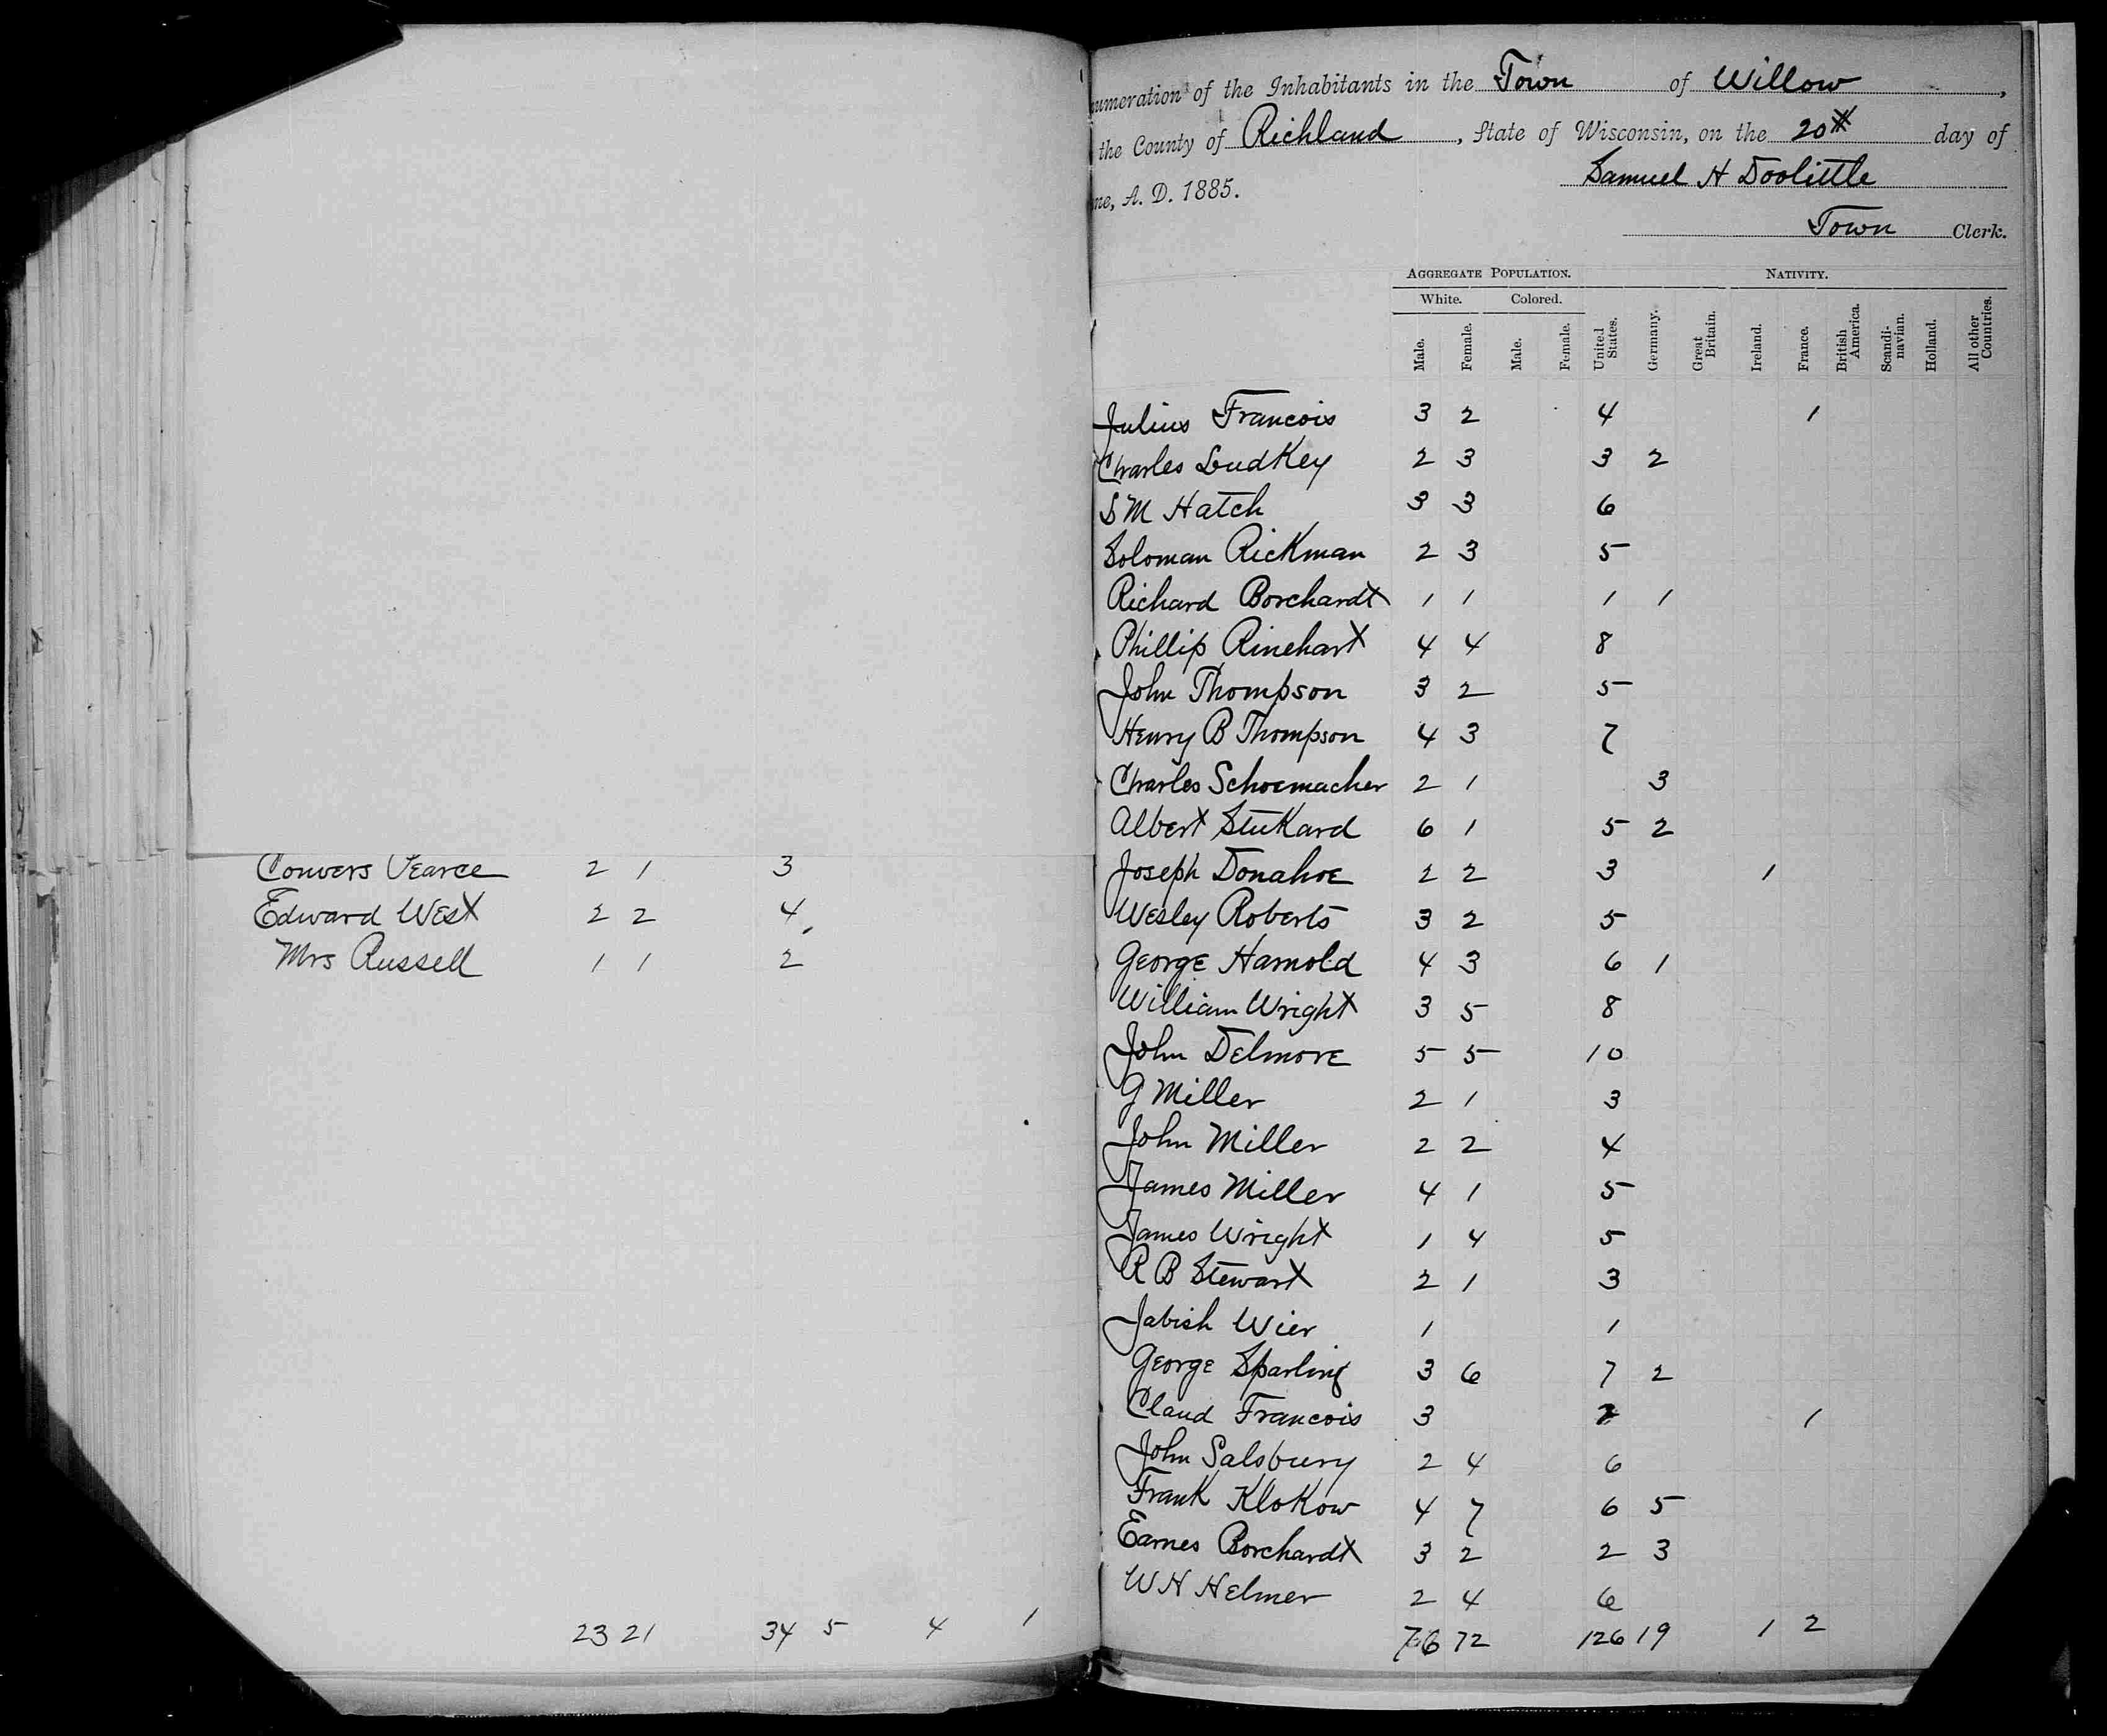 Convers Pearce 2 1 3
Edward West 2 2 4
Mrs Russell 1 1 2
23 21 34 5 4 1
of the Inhabitants in the Town of Willow,
the County of Richland, State of Wisconsin, on the 20th day of
A. D. 1885.
Samuel H Doolittle
Town Clerk.
AGGREGATE POPULATION. NATIVITY.
White. Colored.
Male. Female. Male. Female. United States. Germany. Great Britain. Ireland. France. British America. Scandinavian. Holland. All other Countries.
Julius Francois 3 2 4 1
Charles Ludkey 2 3 3 2
S M Hatch 3 3 6
Soloman Rickman 2 3 5
Richard Borchardt 1 1 1 1
Phillip Rinehart 4 4 8
John Thompson 3 2 5
Henry B Thompson 4 3 7
Charles Schoemacher 2 1 3
Albert Stukard 6 1 5 2
Joseph Donahoe 2 2 3 1
Wesley Roberts 3 2 5
George Harnold 4 3 6 1
William Wright 3 5 8
John Delmore 5 5 10
G Miller 2 1 3
John Miller 2 2 4
James Miller 4 1 5
James Wright 1 4 5
R B Stewart 2 1 3
Jabish Wier 1 1
George Sparling 3 6 7 2
Claud Francois 3 2 1
John Salsbury 2 4 6
Frank Klokow 4 7 6 5
Earnes Borchardt 3 2 2 3
W H Helmer 2 4 6
76 72 126 19 1 2